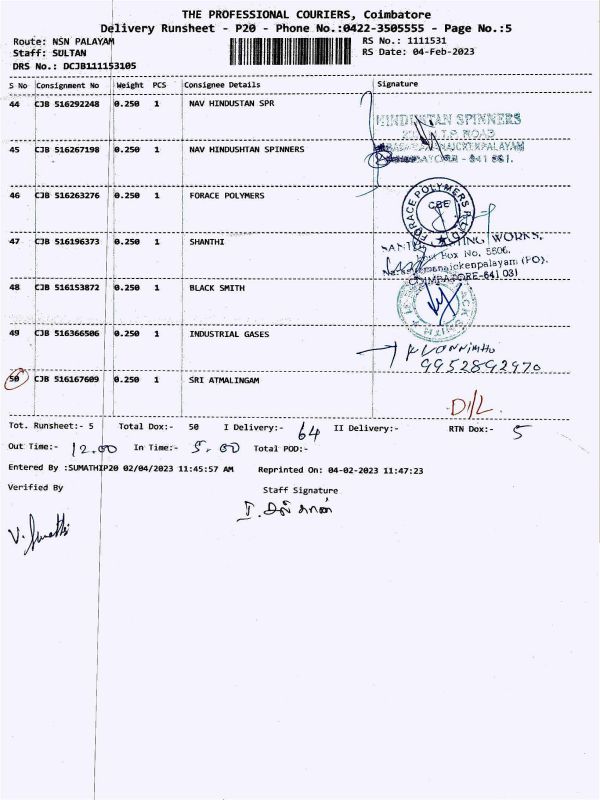 THE PROFESSIONAL COURIERS, Coimbatore
Delivery Runsheet - P20 - Phone No.:0422-3505555 - Page No.:5
Route: NSN PALAYAM RS No.: 1111531
Staff: SULTAN RS Date: 04-Feb-2023
DRS No.: DCJB111153105
S No Consignment No Weight PCS Consignee Details Signature
44 CJB 516292248 0.250 1 NAV HINDUSTAN SPR
HINDUSTAN SPINNERS
45 CJB 516267198 0.250 1 NAV HINDUSHTAN SPINNERS
46 CJB 516263276 0.250 1 FORACE POLYMERS
FORACE POLYMERS
CBE
47 CJB 516196373 0.250 1 SHANTHI
WORKS,
Box No. 5506,
Narasimmanaickenpalayam (PO),
COIMBATORE-641 031
48 CJB 516153872 0.250 1 BLACK SMITH
49 CJB 516366506 0.250 1 INDUSTRIAL GASES
9952892970
50 CJB 516167609 0.250 1 SRI ATMALINGAM
D/L
Tot. Runsheet:- 5 Total Dox:- 50 I Delivery:- 64 II Delivery:- RTN Dox:- 5
Out Time:- 12.00 In Time:- 5.00 Total POD:-
Entered By :SUMATHIP20 02/04/2023 11:45:57 AM Reprinted On: 04-02-2023 11:47:23
Verified By Staff Signature
V. Sumathi